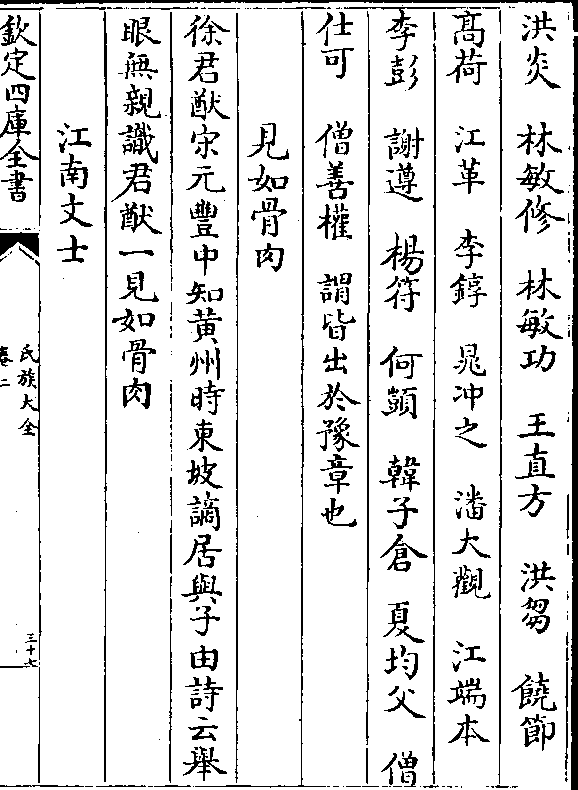 洪炎　林敏修　林敏功　王直方　洪芻　饒節
髙荷　江革　李錞　晁冲之　潘大觀　江端本
李彭　謝薖　楊符　何顗　韓子倉　夏均父　僧
仕可　僧善權　謂皆出於豫章也
見如骨肉
徐君猷宋元豐中知黄州時東坡謫居與子由詩云舉
眼無親識君猷一見如骨肉
江南文士
欽定四庫全書
氏族大全
卷二
三十六